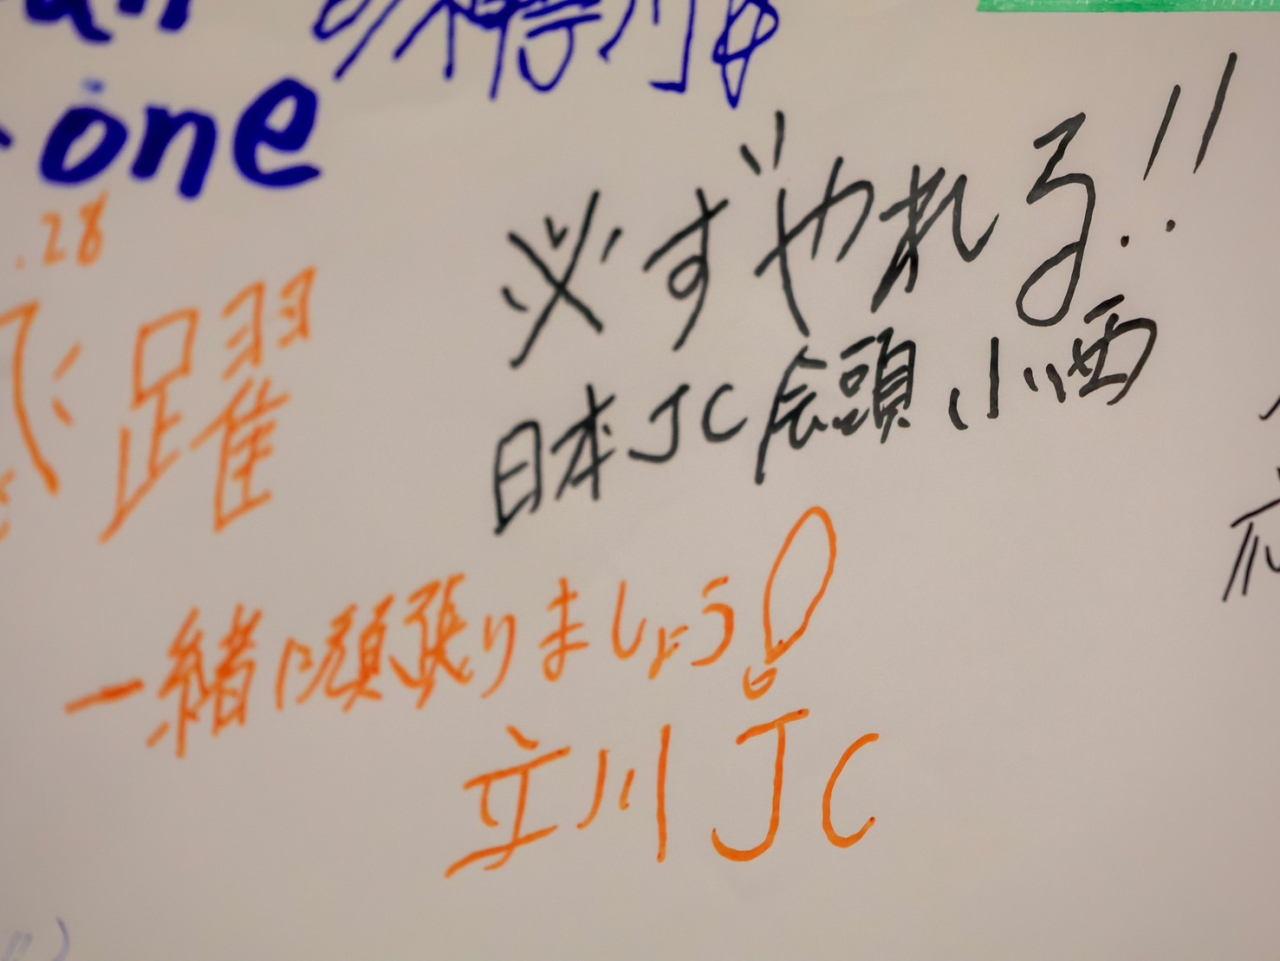 の神奈川は
one
.28
飛躍
必ずやれる!!
日本JC会頭 小西
一緒に頑張りましょう!
立川JC